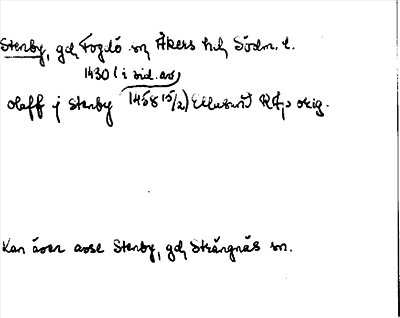 Stenby, gd, Fogdö sn Åkers hd, Södm. l.
1430 (i vid. av
Olaff j Stenby 1458 15/2) Ellusund RAp orig.
Kan även avse Stenby, gd, Strängnäs sn.